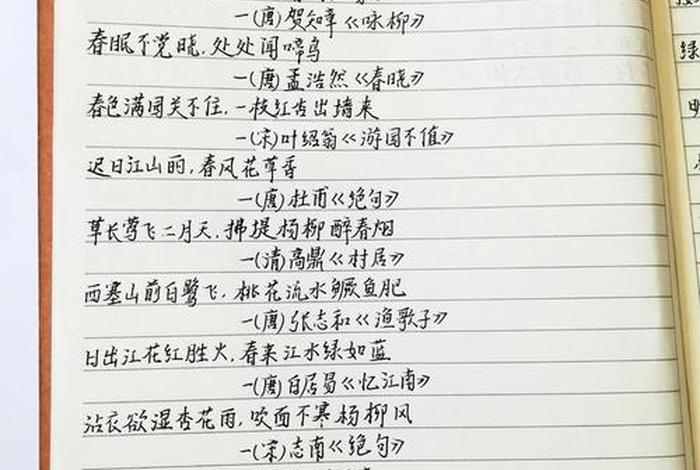 —(唐)贺知章《咏柳》
春眠不觉晓,处处闻啼鸟
—(唐)孟浩然《春晓》
春色满园关不住,一枝红杏出墙来
—(宋)叶绍翁《游园不值》
迟日江山丽,春风花草香
—(唐)杜甫《绝句》
草长莺飞二月天,拂堤杨柳醉春烟
—(清)高鼎《村居》
西塞山前白鹭飞,桃花流水鳜鱼肥
—(唐)张志和《渔歌子》
日出江花红胜火,春来江水绿如蓝
—(唐)白居易《忆江南》
沾衣欲湿杏花雨,吹面不寒杨柳风
—(宋)志南《绝句》
绿